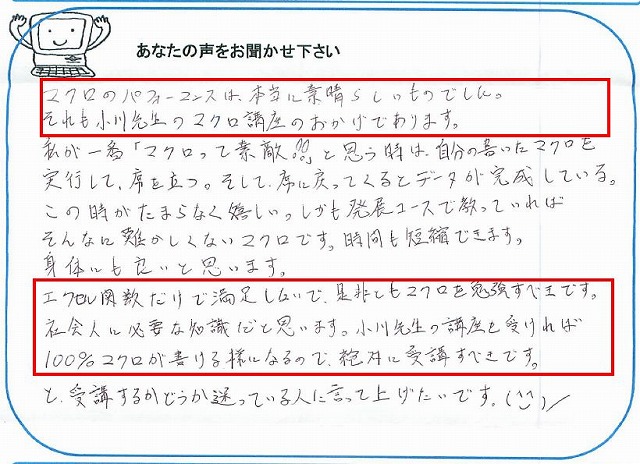 あなたの声をお聞かせ下さい
マクロのパフォーマンスは、本当に素晴らしいものでした。
それも小川先生のマクロ講座のおかげであります。
私が一番「マクロって素敵!!」と思う時は、自分の書いたマクロを
実行して、席を立つ。そして、席に戻ってくるとデータが完成している。
この時がたまらなく嬉しい。しかも発展コースで教っていれば
そんなに難かしくないマクロです。時間も短縮できます。
身体にも良いと思います。
エクセル関数だけで満足しないで、是非ともマクロを勉強すべきです。
社会人に必要な知識だと思います。小川先生の講座を受ければ
100%マクロが書ける様になるので、絶対に受講すべきです。
と、受講するかどうか迷っている人に言って上げたいです。(^^)/